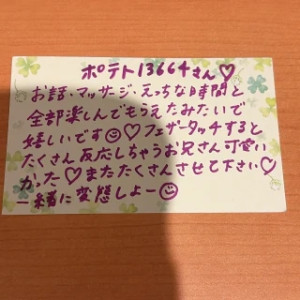 ポテト13664さん♡
お話・マッサージ・えっちな時間と
全部楽しんでもらえたみたいで
嬉しいです☺♡フェザータッチすると
たくさん反応しちゃうお兄さん可愛い
かった♡またたくさんさせて下さい♡
一緒に変態しよー☺